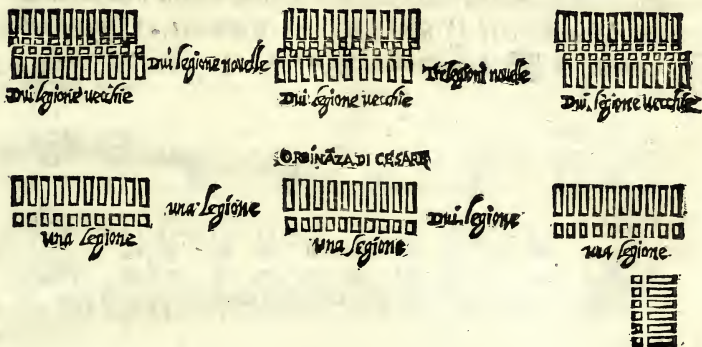 Dui legione nouelle
Tre legioni nouelle
Dui legione uecchie
Dui legione uecchie
Dui legione uecchie
ORDINĀZA DI CESARE
una legione
dui legione
una legione
una legione
una legione